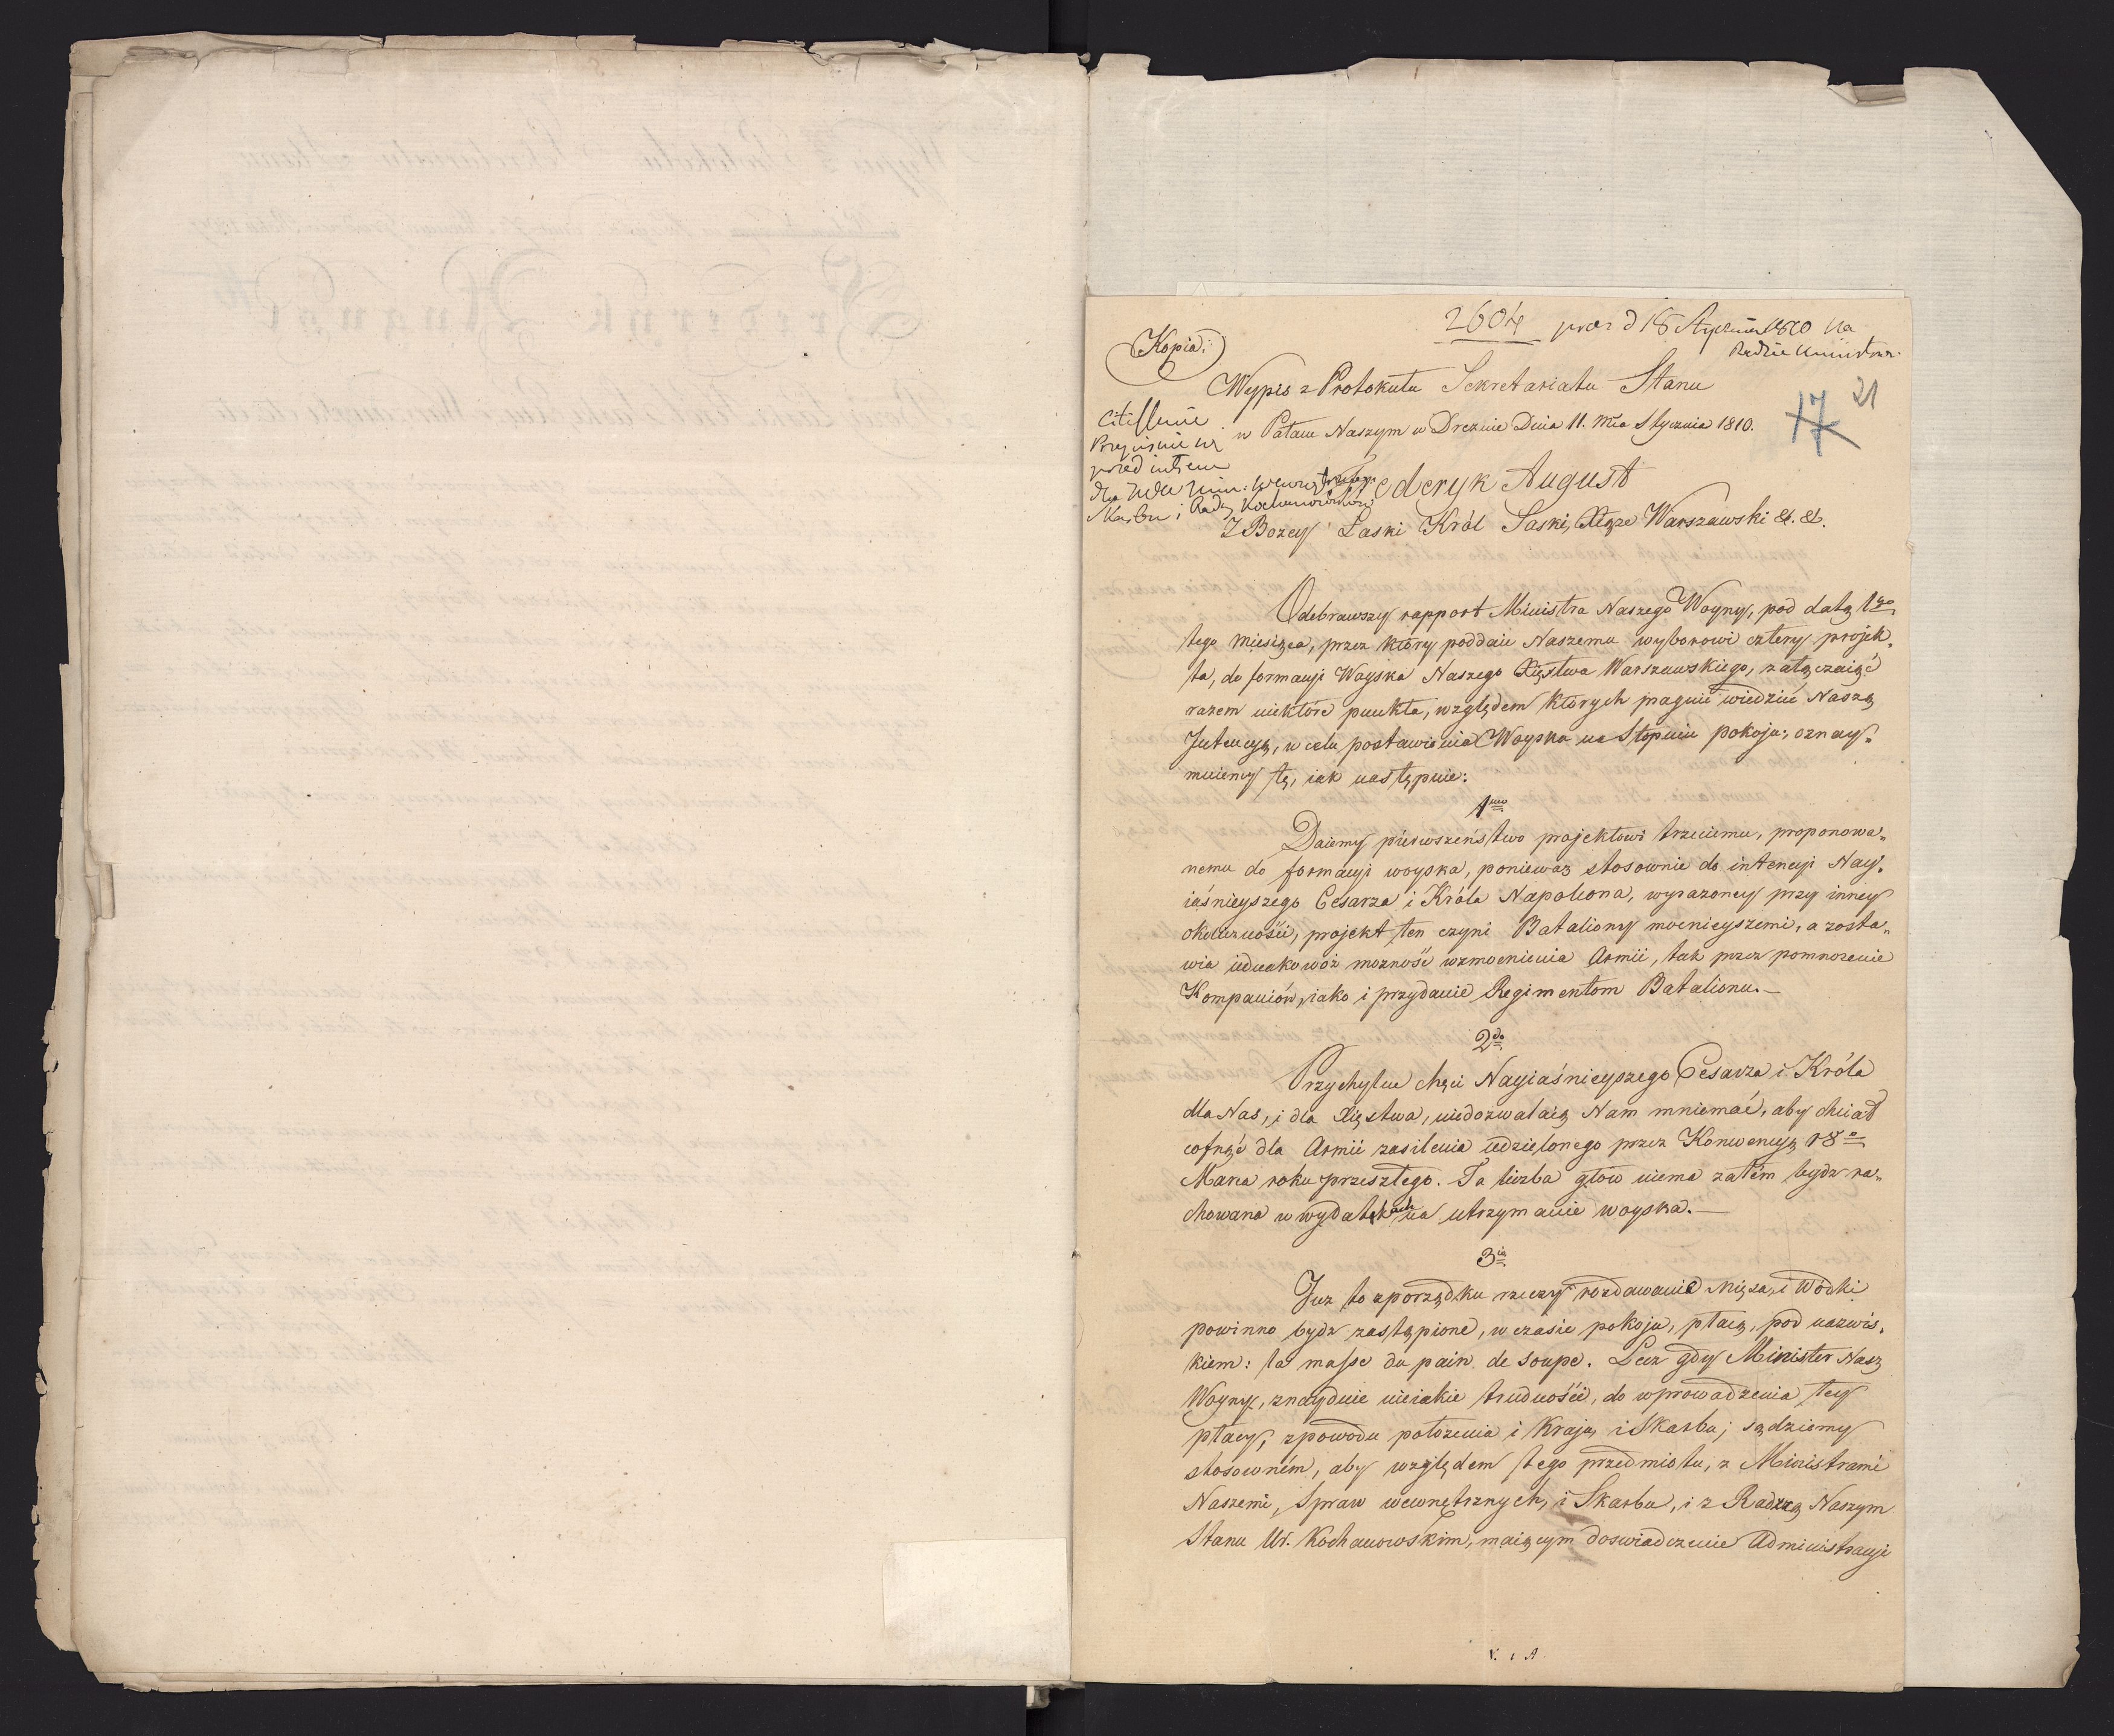 2604 praes d 18 Stycznia 1810 na
Radzie Ministrow.
Kopia:
Wypis z Protokułu Sekretariatu Stanu
21
17
w Pałacu Naszym w Dreznie Dnia 11. Mca Stycznia 1810.
Citissime
przed
dla
Skarbu i Radcy Kochanowskiego
Fryderyk August
Z Bożey Łaski Król Saski, Xiąże Warszawski &. &.
Odebrawszy rapport Ministra Naszego Woyny, pod datą 1go
tego miesiąca, przez który poddaie Naszemu wyborowi cztery projek„
ta, do formacyi Woyska Naszego Xięstwa Warszawskiego, załączaiąć
razem niektóre punkta, względem których pragnie wiedzieć Naszą
Jntencyą, w celu postawienia Woyska na Stopniu pokoju; oznay„
muiemy tę, iak następuie:
1mo
Daiemy pierwszeństwo projektowi trzeciemu, proponowa„
nemu do formacyi woyska, ponieważ stosownie do intencyi Nay„
iaśnieyszego Cesarza i Króla Napoleona, wyrażoney przy inney
okoliczności, projekt ten czyni Bataliony mocnieyszemi, a zosta„
wia iednakowóż możność wzmocnienia Armii, tak przez pomnożenie
Kompaniów, iako i przydanie Regimentom Batalionu.—
2do
Przychylne chęci Nayiaśnieyszego Cesarza i Króla
dla Nas, i dla Xięstwa, niedozwalaią Nam mniemać, aby chciał
cofnąć dla Armii zasilenia udzielonego przez Konwencyą 18o
Marca roku przeszłego. Ta liczba głów niema zatém bydz ra„
chowana w wydatkach na utrzymanie woyska.—
3io
Juz to zporządku rzeczy rozdawanie Mięsa, i Wódki
powinno bydz zastąpione, w czasie pokoju, płacą, pod nazwis„
kiem: la masse du pain de soupe. Lecz gdy Minister Nasz
Woyny, znayduie nieiakie trudności, do wprowadzenia tey
płacy, zpowodu położenia i Kraju, i Skarbu; sądziemy
stosowném, aby względem tego przedmiotu, z Ministrami
Naszemi, Spraw wewnętrznych, i Skarbu, i z Radzcą Naszym
Stanu Ur. Kochanowskim, maiącym doswiadczenie Administracyi
V. i A